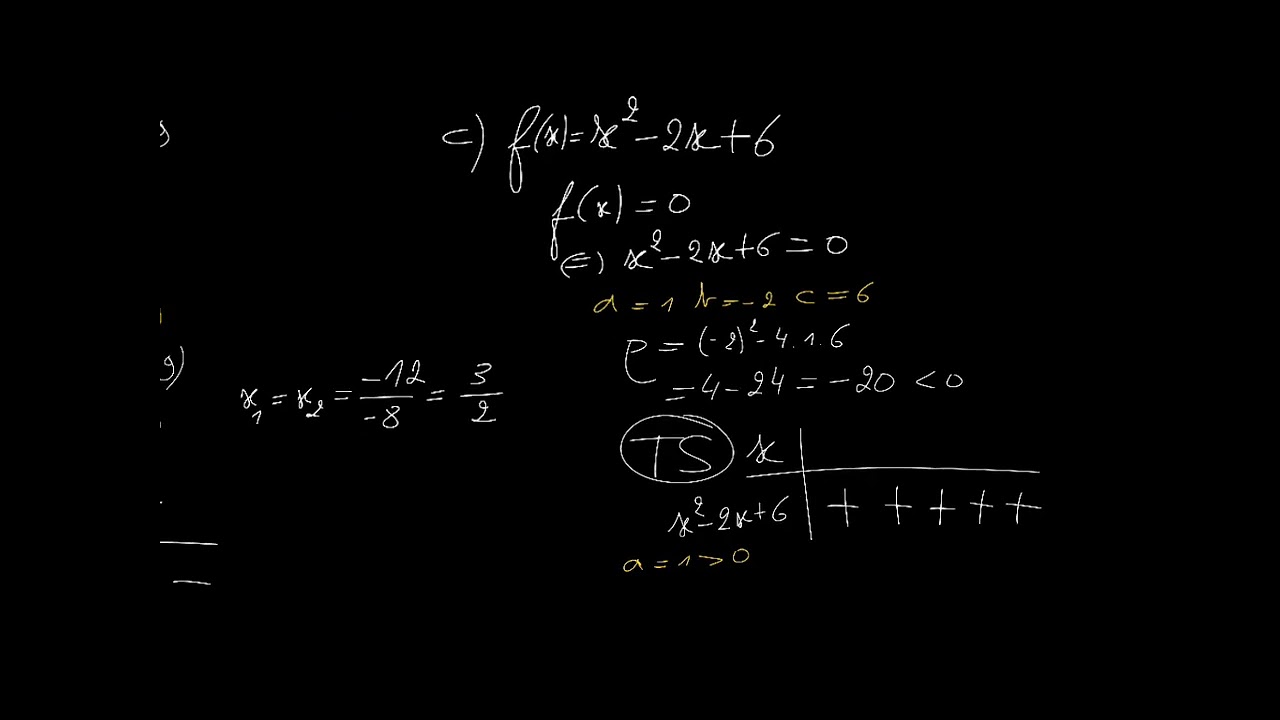 c) f(x)=x²-2x+6
f(x)=0
⇔ x²-2x+6=0
a=1 b=-2 c=6
ρ=(-2)²-4.1.6
=4-24=-20<0
9)
x₁=x₂=-12/-8=3/2
TS x
x²-2x+6 + + + + +
a=1>0